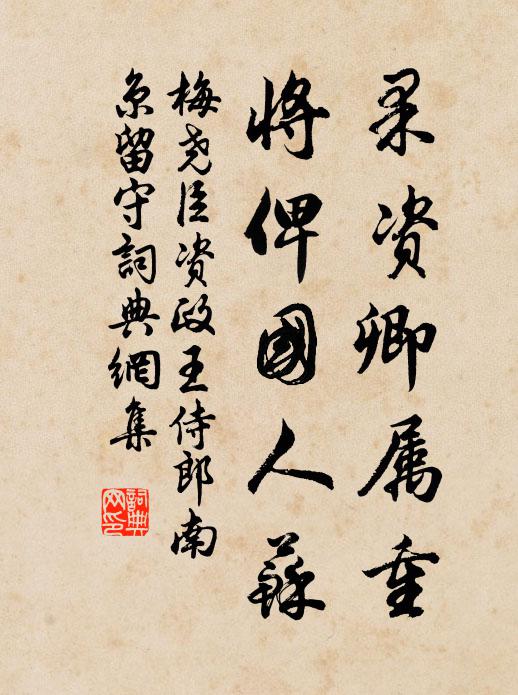 累資卿属重
將俾國人蘇
梅堯臣資政王侍郎南
京留守詞典網集
詞典网印